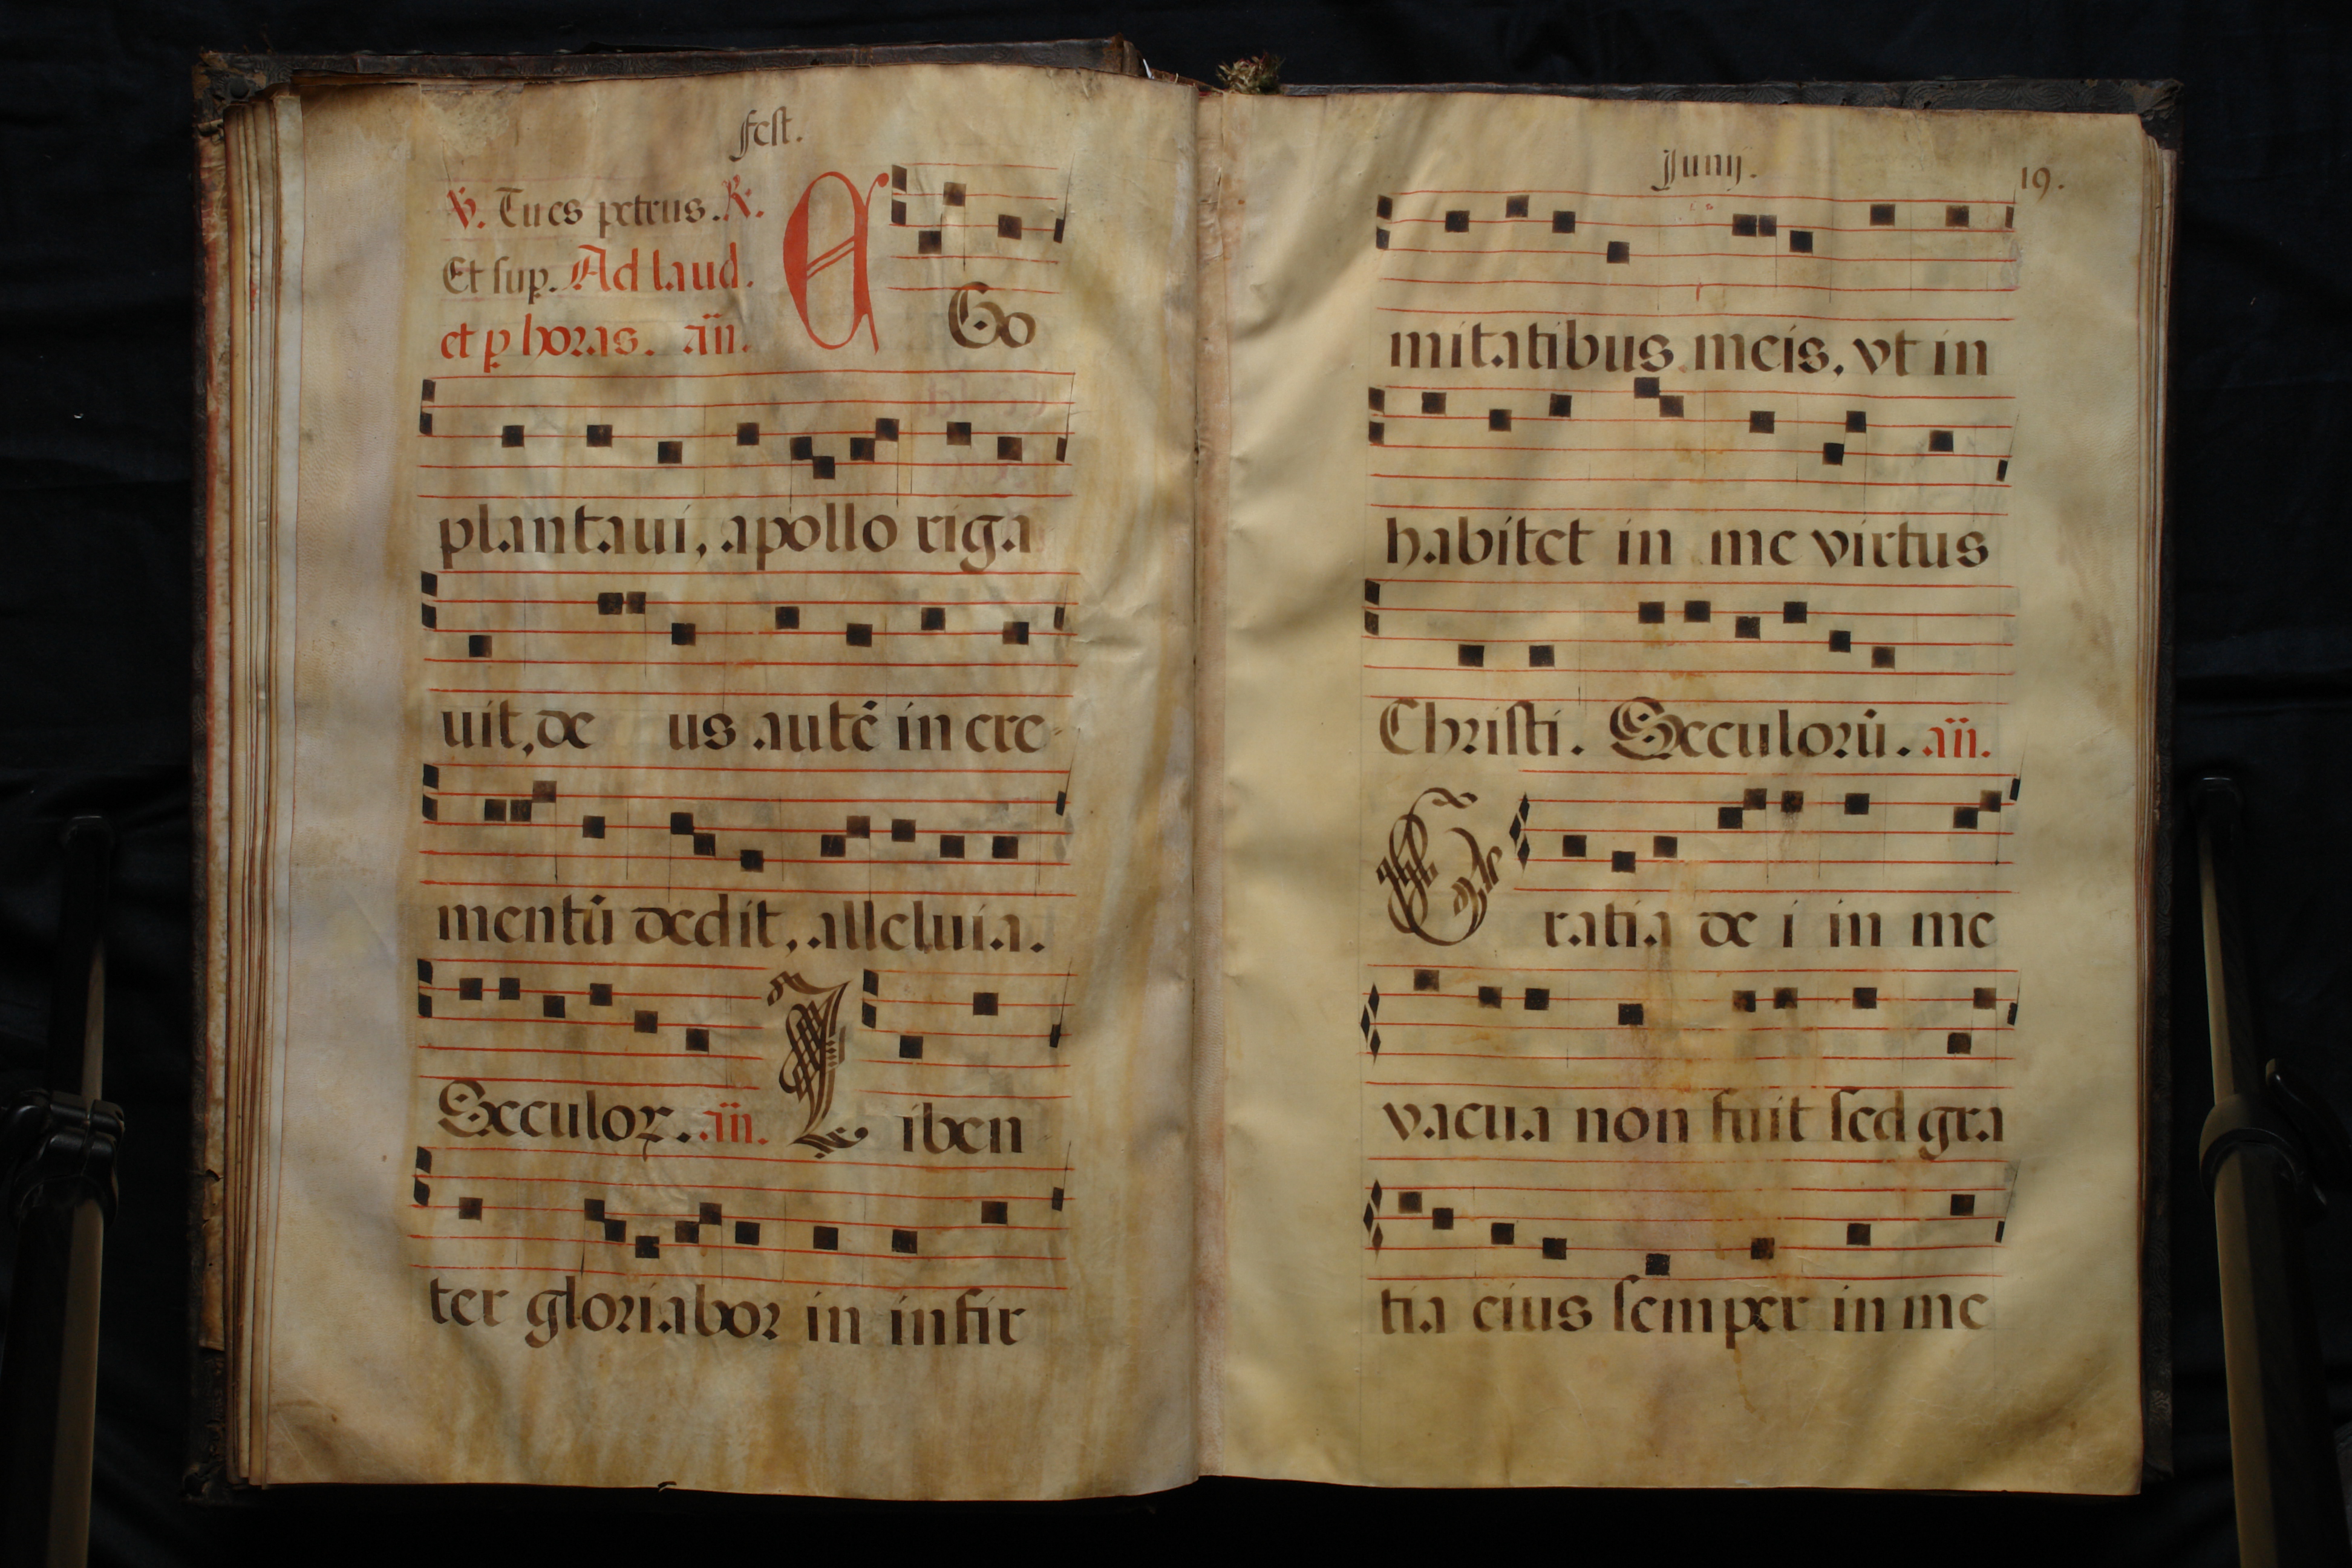 fest.
℣. Tu es petrus. ℟.
Et sup. Ad laud.
et p horas. añ.
E Go
plantaui, apollo riga
uit, de us autē in cre-
mentū dedit, alleluia.
Seculoꝝ. añ. L iben
ter gloriabor in infir
Junij. 19.
mitatibus meis, vt in
habitet in me virtus
Christi. Seculorū. añ.
G ratia de i in me
vacua non fuit sed gra
tia eius semper in me